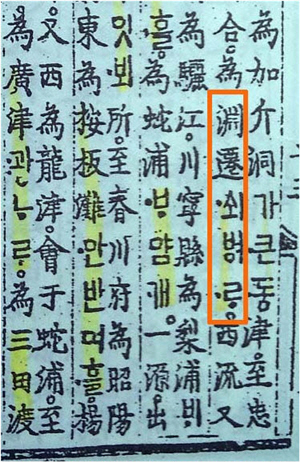 為加介洞가큰동津至忠
合為淵遷쇠벼ᄅᆞ西流又
為驪江川寧縣為梨浦ᄇᆡ
為蛇浦ᄇᆞ얌개一源出
所至春川府為昭陽
東為按板灘안반여흘楊
又西為龍津會于蛇浦至
為廣津광ᄂᆞᄅᆞ為三田渡